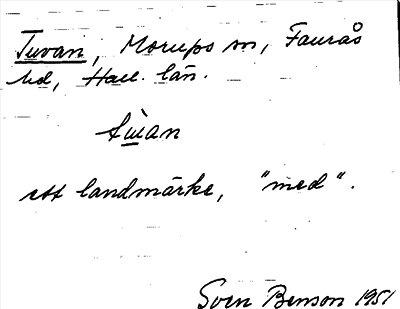 Tuvan, Morups sn, Faurås
hd, Hall. län.
tu̲an
ett landmärke, "med".
Sven Benson 1951